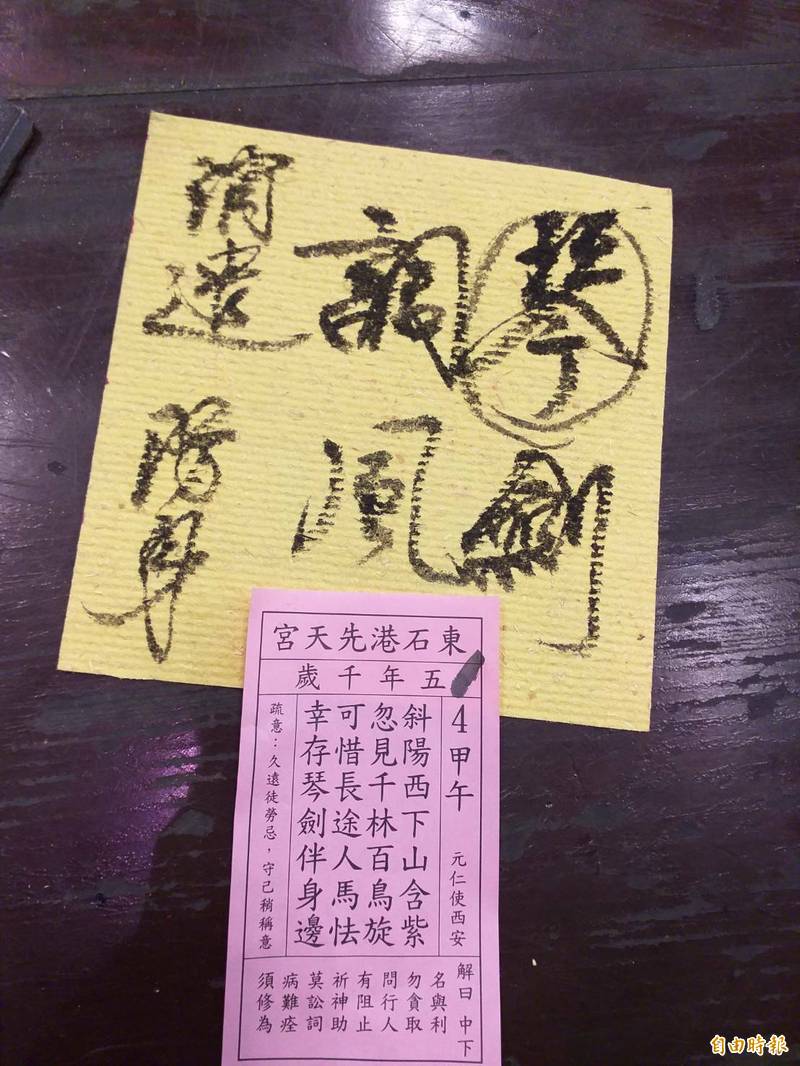 琴劍
調風
消遣
陽身
東石港先天宮
五年千歲
4甲午 元仁使西安
斜陽西下山含紫
忽見千林百鳥旋
可惜長途人馬怯
幸存琴劍伴身邊
疏意：久遠徒勞忌，守己稍稱意
解曰 中下
名與利
勿貪取
問行人
有阻止
祈神助
莫訟詞
病難痊
須修為
自由時報